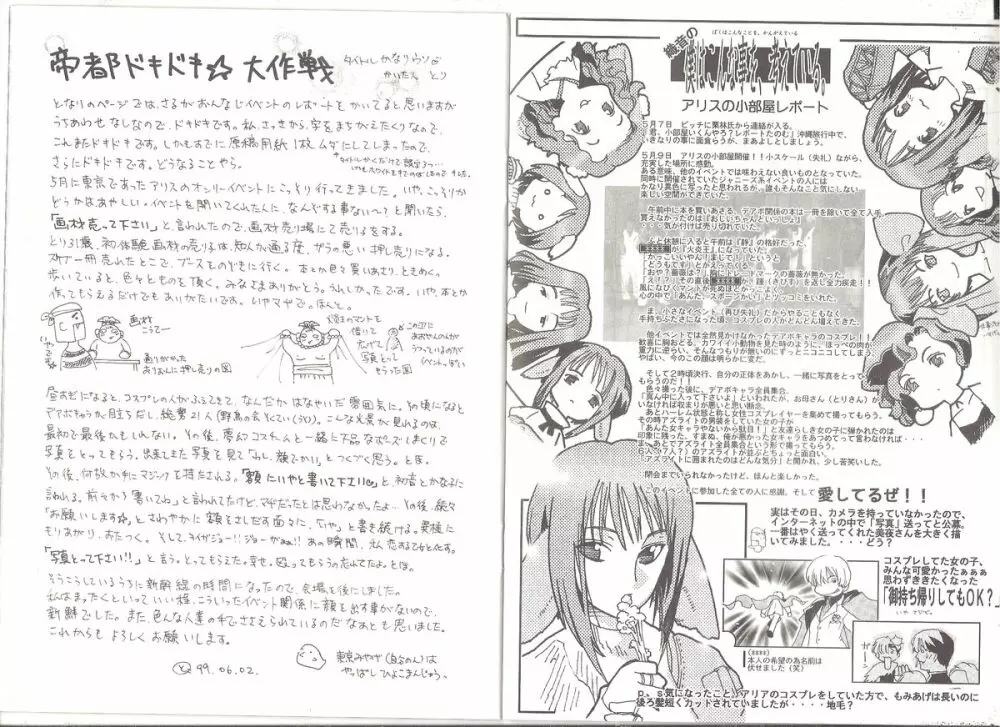 帝都ドキドキ☆大作戦
タイトルかなりウソ
かいたん とり
となりのページでは、さるがおんなじイベントのレポートをかいてると思いますが
うちあわせなしなので、ドキドキです。私、さっきから字をまちがえたくりなので、
これまたドキドキです。しかもすでに原稿用紙1枚ムダにしてしまったので、
さらにドキドキです。どうなることやら。
5月に東京であったアリスのオンリーイベントにこっそり行ってきました。いや、こっそりか
どうかはあやしい。イベントを開いてくれたんに、なんぞする事ない〜?と聞いたら、
「画材売って下さい」と言われたので、画材売り場にて売り子をする。
とりさ1歳、初体験。画材の売り子は、知人が通る度、ガラの悪い押し売りになる。
作ってもらえるだけでもありがたいです。いやマヂで。ほんと。
画材
こうてー
画りがやった
押し売りの図
魔王のマントを
借りて
広げて
写真とって
もらった図
昼すぎになると、コスプレの人がふえてきて、なんだかはなやいだ雰囲気に。その頃になると
最初で最後かもしれない。その後、夢幻コスちゃんと一緒に下品なポーズしまくりで
写真をとってもらう。出来ました写真を見て「わし、顔でかい」とつくづく思う。とほ。
その後、何故か手にマジックを持たされる。「額ににいやと書いて下さい」と、初音とかな子に
言われる。前々から「書いてね」と言われてたけど、マヂだったとは思わなかったよ…。その後、続々
「お願いします☆」とさわやかに額をさしだす面々に、「いや」と書き続ける。異様に
もりあがり、おたっく。そして、
あの瞬間、私、恋する乙女と化す。
「写真とって下さい!!」と言う。とってもらえた。幸せ。
そうこうしているうちに新幹線の時間になったので、会場を後にしました。
私はまったくといっていい程、こういったイベント関係に顔を出す事がないので、
新鮮でした。また、色んな人達の手でささえられているのだなあとも思いました。
これからも よろしくお願いします。
99.06.02.
東京みやげ(自分のん)は
やっぱしひよこまんじゅう。
ぼくはこんなことを、かんがえている
初音の
僕はこんな事を考えている。
アリスの小部屋レポート
5月7日 ピッチに栗林氏から連絡が入る。
「君、小部屋いくんやろ?レポートたのむ」沖縄旅行中で、
いきなりの事に面食らうが、まあよしとしましょう。
5月9日 アリスの小部屋開催!!小スケール(失礼)ながら、
充実した場所に感動。
ある意味、他のイベントでは味わえない良いものとなっていた。
同時に開催されていたジャニーズ系イベントの人には
かなり異色に写ったと思われるが、誰もそんなこと気にしない
楽しい空間ができていた。
午前中に本を買いあさる、デアボ関係の本は一冊を除いて全て入手。
買えなかったのは『おじいちゃんといっしょ』
・・・気が付けば売り切れていた。
ムと休憩に入ると午前は『静』の格好だった、
が『火炎王』になっていた。
「かっこいいやん!まじで!」というと
「どうもです」とかえってくる。
「おや?薔薇は?」胸にトレードマークの薔薇が無かった。
「え!?」その直後
が、踵(きびす)を返し全力疾走!!
風になびくマントが死ぬほどかっこよく
心の中で「あんた、スポーンかい」とツッコミをいれた。
ま、小さなイベント(再び失礼)だからやることもなく
手持ちぶたさになった頃、コスプレの人がどんどん増えてきた。
他イベントでは全然見かけなかったデアボキャラのコスプレ!!
歓喜に胸おどる、カワイイ小動物を見た時のように、ほっぺの肉が
重力に逆らい、そんなつもりが無いのにずっとニコニコしてしまう。
やばい、今この顔は明らかに変だ。
そして2時頃決行、自分の正体をあかし、一緒に写真をとって
もらうのだ!!
色々撮った後に、デアボキャラ全員集合。
「真ん中に入って下さいよ」といわれたが、お母さん(とりさん)が
いなければ収まりが悪いと思い断念。
あとハーレム状態と称し女性コスプレイヤーを集めて撮ってもらう。
その時アズライトの男装をしていた女の子が
「あんた女キャラやないから駄目!」と友達らしき女の子に弾かれたのは
印象に残った。すまぬ、俺が悪かった女キャラをあつめてって言わなければ・・・
ま、あとでアズライト全員集合という形で撮ってもらった。
6人(か7人?)のアズライトが並ぶとちょっと面白い。
「アズライトに囲まれたのはどんな気分」と聞かれ、少し苦笑いした。
閉会までいられなかったけど、ほんと楽しかった。
このイベントに参加した全ての人に感謝、そして 愛してるぜ!!
実はその日、カメラを持っていなかったので、
インターネットの中で「写真」送ってと公募。
一番はやく送ってくれた美夜さんを大きく描
いてみました。・・・どう?
コスプレしてた女の子、
みんな可愛かったぁぁぁ
思わずききたくなった
「御持ち帰りしてもOK?」
いや マジで。
(××××)
本人の希望の為名前は
伏せました(笑)
p.s気になったこと。アリアのコスプレをしていた方で、もみあげは長いのに
後ろ髪短くカットされていましたが・・・・地毛?